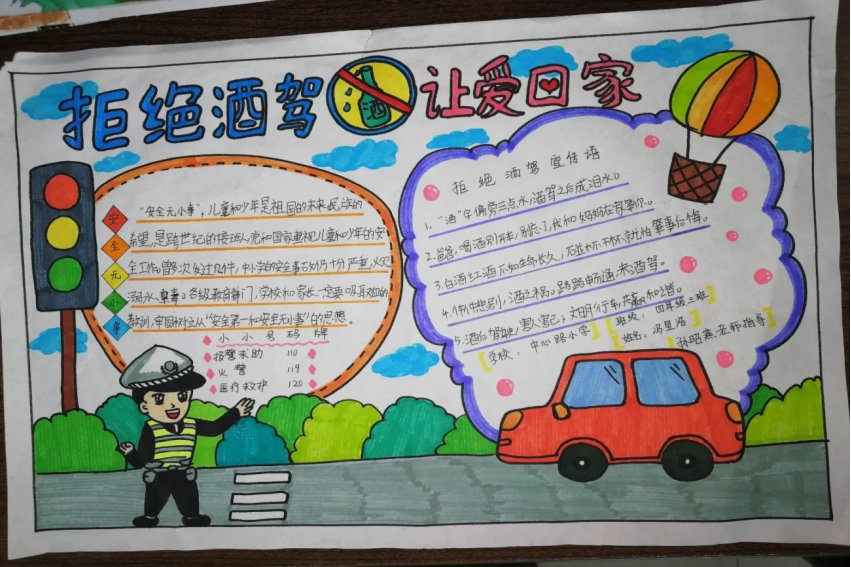 拒绝酒驾 让爱回家
酒
安全无小事
"安全无小事",儿童和少年是祖国的未来,民族的
希望,是跨世纪的接班人,党和国家重视儿童和少年的安
全工作,曾多次发过几件,中小学的安全事故仍十分严重,火灾
溺水、各级教育部门,学校和家长一定要吸取
教训,牢固树立从"安全第一和安全无小事"的思想
小小号码牌
报警求助 110
火警 119
医疗救护 120
拒绝酒驾宣传语
1."酒"字偏旁三点水,酒驾之后成泪水。
2.爸爸,喝酒别开车,别忘了,我和妈妈在家等你。
3.白酒红酒不如生命长久,碰杯干杯就怕肇事后悔。
4.悲剧,酒之祸。路路畅通,来酒驾。
5.酒后驾驶害,文明行车赢和谐。
学校:中心路小学
班级:四年级二班
姓名:冯昱浩
孙昭燕老师指导